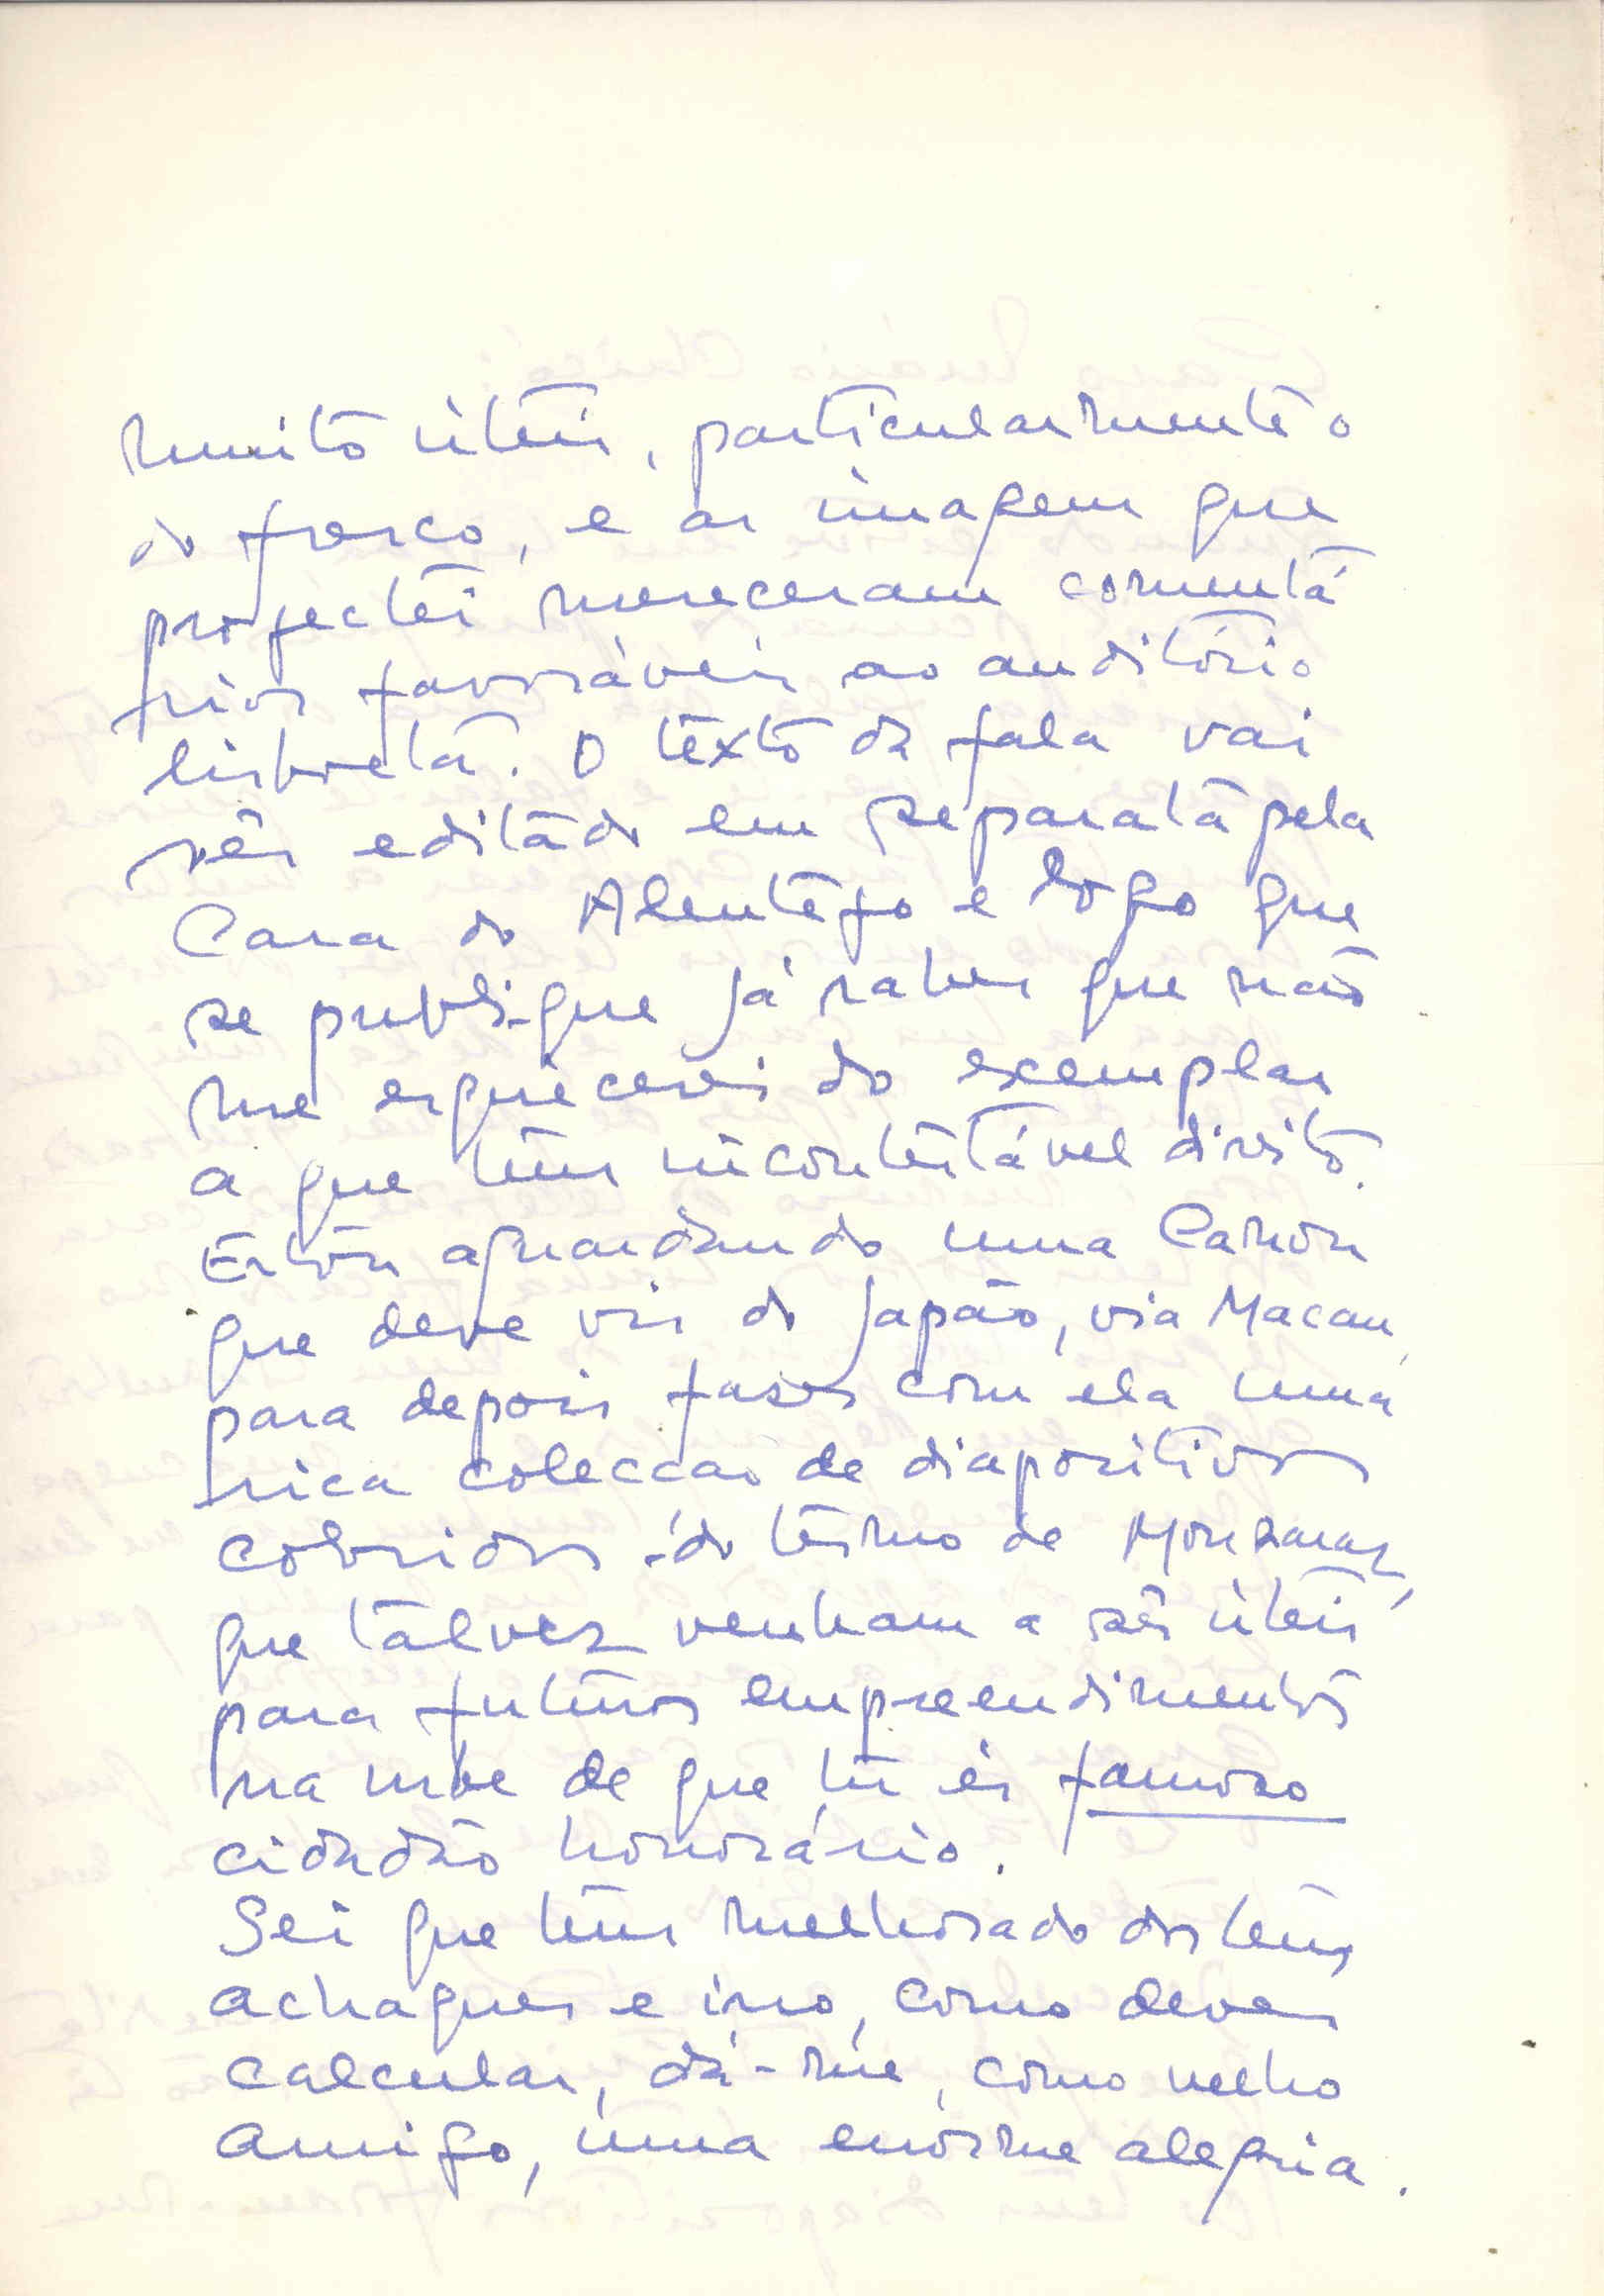 muito úteis, particularmente o
do fresco, e as imagens que
projectei mereceram comentá
rios favoráveis ao auditório
lisboeta. O texto da fala vai
ser editado em separata pela
Casa do Alentejo e logo que
se publique já sabes que não
me esquecerei do exemplar
a que tens incontestável direito.
Estou aguardando uma Canon
que deve vir do Japão, via Macau,
para depois fazer com ela uma
rica colecção de diapositivos
coloridos do termo de Monsaraz,
que talvez venham a ser úteis
para futuros empreendimentos
na urbe de que tu és famoso
cidadão honorário.
Sei que tens melhorado dos teus
achaques e isso, como deves
calcular, dá-me, como velho
amigo, uma enorme alegria.